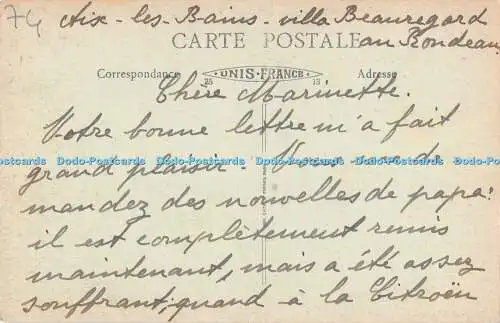 74
Aix-les-Bains - villa Beauregard
au Rondeau
CARTE POSTALE
Correspondance UNIS-FRANCE Adresse
25 13
Chère Marinette.
Votre bonne lettre m'a fait
grand plaisir. Vous me de
Dodo-Postcards Dodo-Postcards Dodo-Postcards Dodo-Postcards Dodo-Postcards
mandez des nouvelles de papa:
il est complètement remis
maintenant, mais a été assez
souffrant, quand à la Citroën